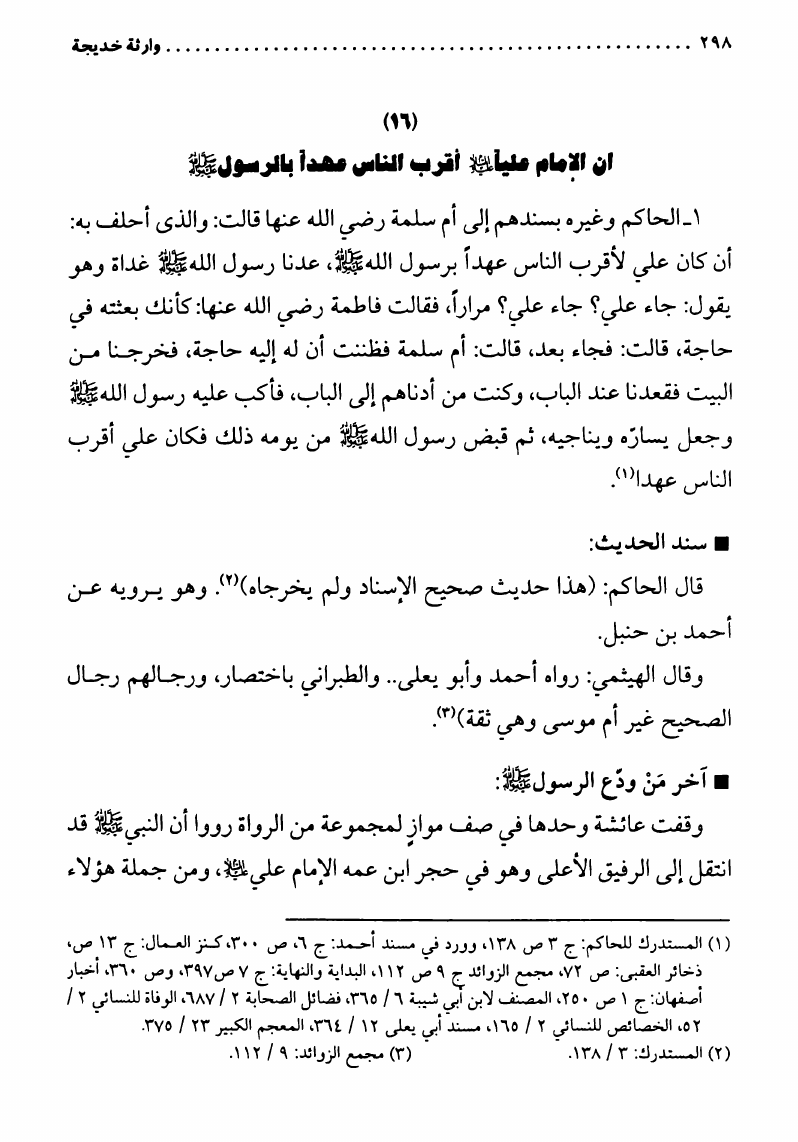 ٢٩٨ ........................................................ وارثة خديجة
(١٦)
ان الإمام علياً عليه السلام أقرب الناس عهداً بالرسول ﷺ
١ـ الحاكم وغيره بسندهم إلى أم سلمة رضي الله عنها قالت: والذى أحلف به:
أن كان علي لأقرب الناس عهداً برسول الله ﷺ، عدنا رسول الله ﷺ غداة وهو
يقول: جاء علي؟ جاء علي؟ مراراً، فقالت فاطمة رضي الله عنها: كأنك بعثته في
حاجة، قالت: فجاء بعد، قالت: أم سلمة فظننت أن له إليه حاجة، فخرجـنا مـن
البيت فقعدنا عند الباب، وكنت من أدناهم إلى الباب، فأكب عليه رسول الله ﷺ
وجعل يسارّه ويناجيه، ثم قبض رسول الله ﷺ من يومه ذلك فكان علي أقرب
الناس عهدا(١).
■ سند الحديث:
قال الحاكم: (هذا حديث صحيح الإسناد ولم يخرجاه)(٢). وهو يـرويه عـن
أحمد بن حنبل.
وقال الهيثمي: رواه أحمد وأبو يعلى.. والطبراني باختصار، ورجـالهم رجـال
الصحيح غير أم موسى وهي ثقة)(٣).
■ آخر مَنْ ودّع الرسول ﷺ:
وقفت عائشة وحدها في صف موازٍ لمجموعة من الرواة رووا أن النبي ﷺ قد
انتقل إلى الرفيق الأعلى وهو في حجر ابن عمه الإمام علي عليه السلام، ومن جملة هؤلاء
(١) المستدرك للحاكم: ج ٣ ص ١٣٨، وورد في مسند أحـمد: ج ٦، ص ٣٠٠، كـنز العـمال: ج ١٣ ص،
ذخائر العقبى: ص ٧٢، مجمع الزوائد ج ٩ ص ١١٢، البداية والنهاية: ج ٧ ص٣٩٧، وص ٣٦٠، أخبار
أصفهان: ج ١ ص ٢٥٠، المصنف لابن أبي شيبة ٦ / ٣٦٥، فضائل الصحابة ٢ / ٦٨٧، الوفاة للنسائي ٢ /
٥٢، الخصائص للنسائي ٢ / ١٦٥، مسند أبي يعلى ١٢ / ٣٦٤، المعجم الكبير ٢٣ / ٣٧٥.
(٢) المستدرك: ٣ / ١٣٨. (٣) مجمع الزوائد: ٩ / ١١٢.